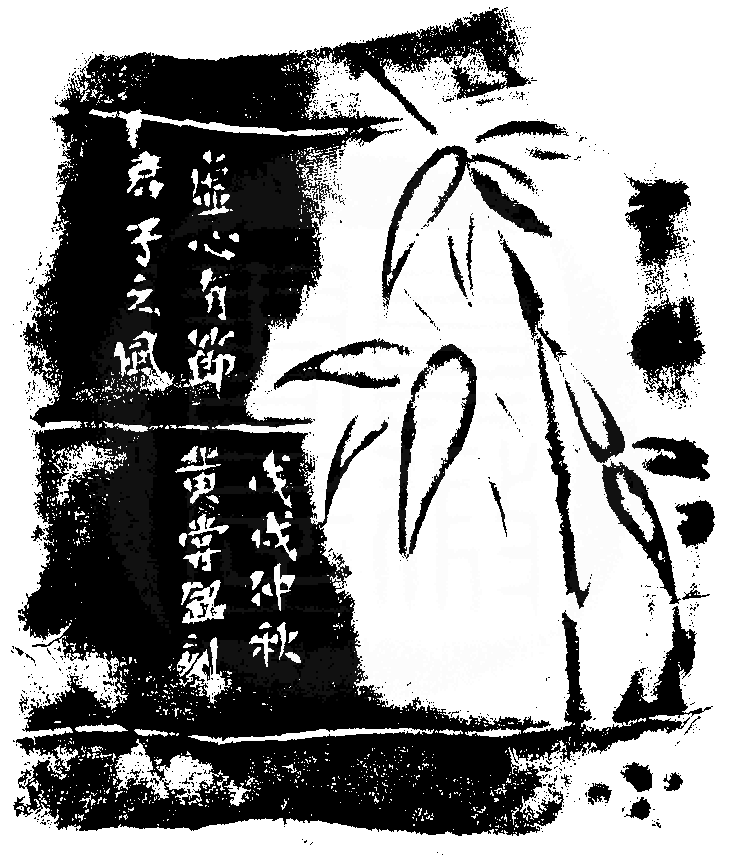 虛心有節
君子之風
戊戌仲秋
黄常銘刻